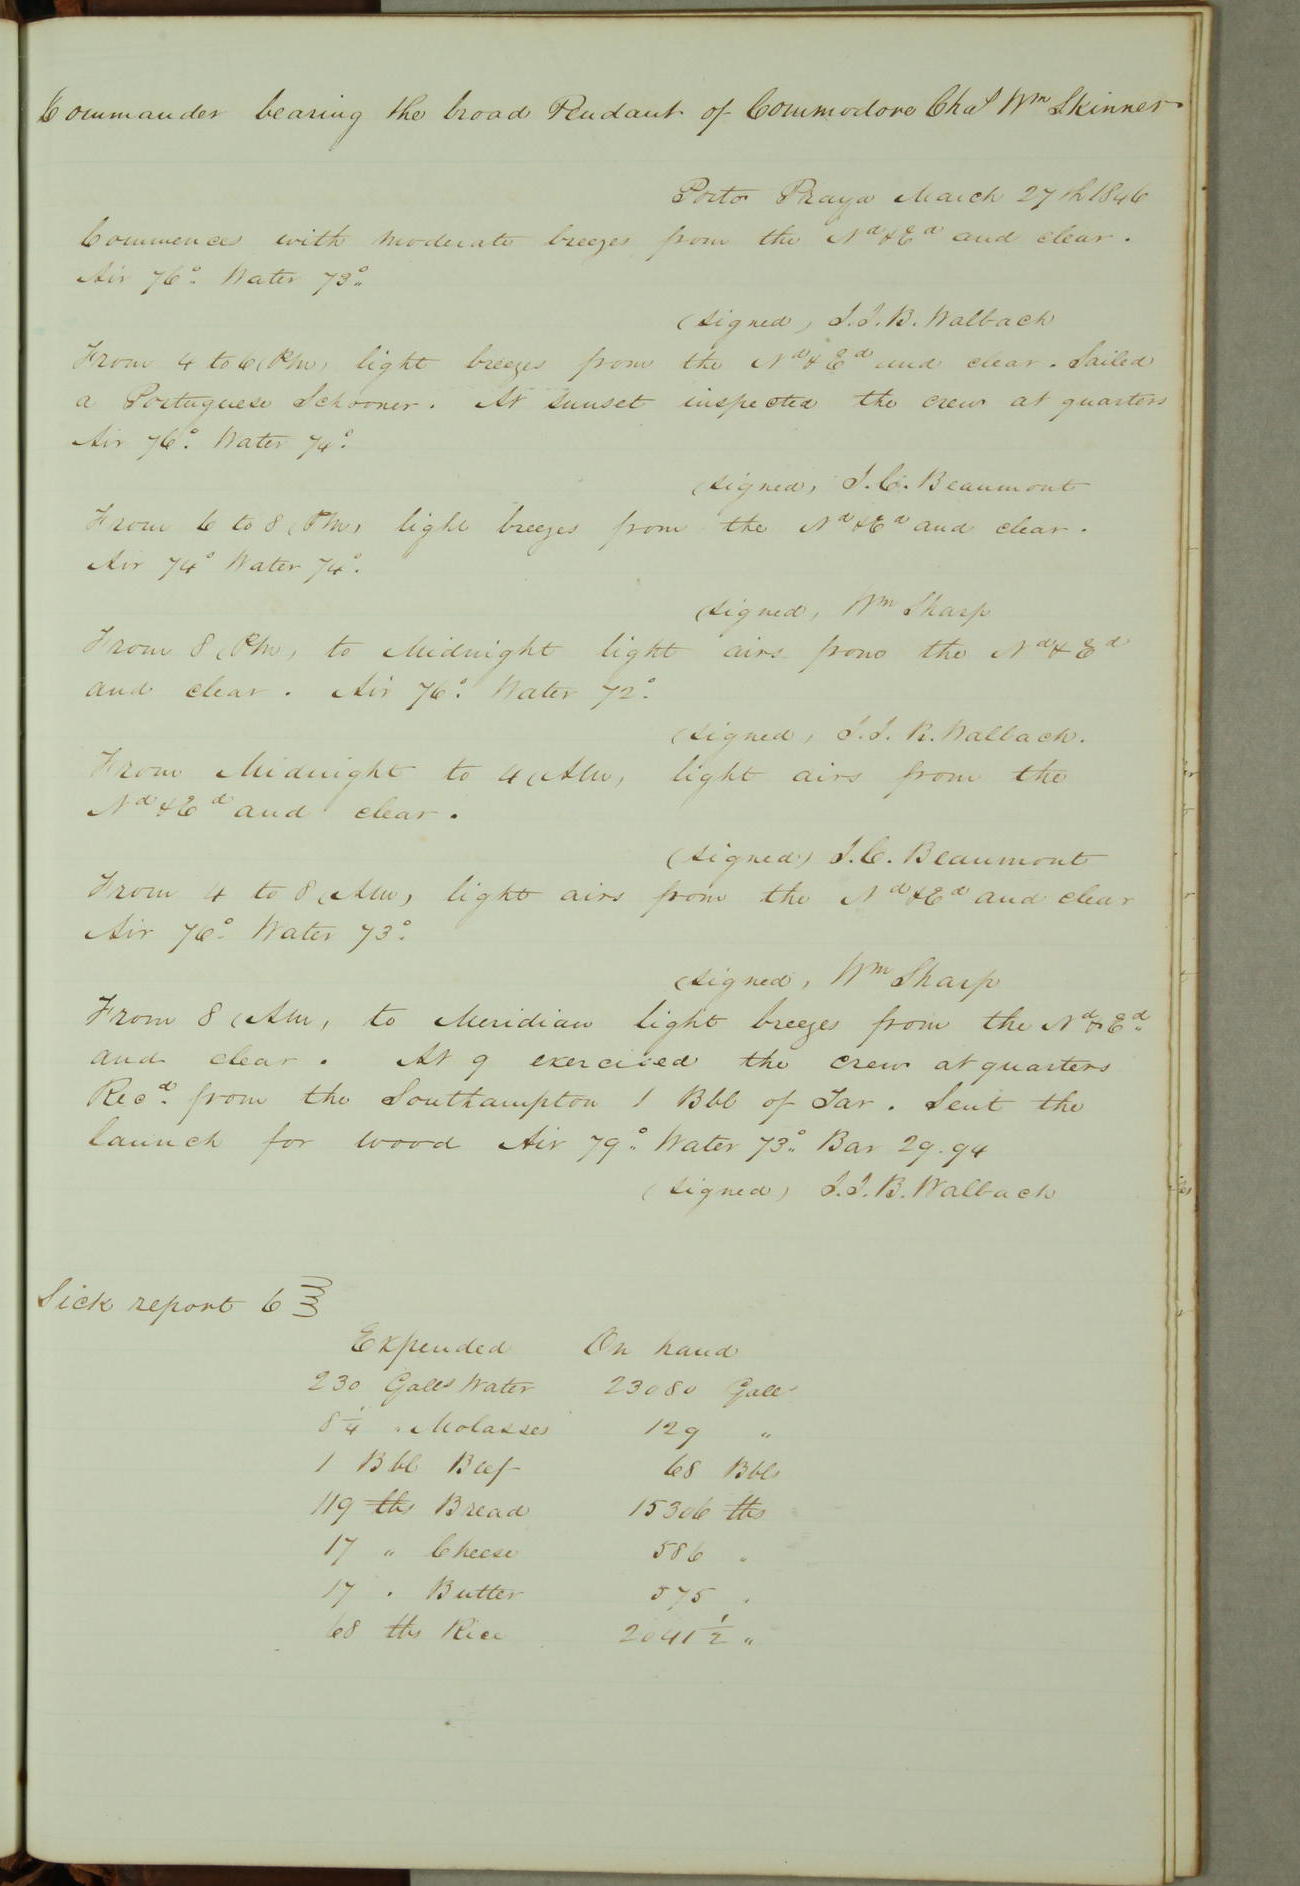 Commander bearing the broad Pendant of Commodore Chas Wm Skinner
Porto Praya March 27th 1846
Commences with moderate breezes from the Nd & Ed and clear.
Air 76° Water 73°
(signed) J.J.B. Walbach
From 4 to 6 (PM) light breezes from the Nd & Ed and clear. Sailed
a Portuguese Schooner. At sunset inspected the crew at quarters
Air 76° Water 74°
(signed) J.C. Beaumont
From 6 to 8 (PM) light breezes from the Nd & Ed and clear.
Air 74° Water 74°
(signed) Wm Sharp
From 8 (PM) to Midnight light airs from the Nd & Ed
and clear. Air 76° Water 72°
(signed) J.J.B. Walbach.
From Midnight to 4 (AM) light airs from the
Nd & Ed and clear.
(signed) J.C. Beaumont
From 4 to 8 (AM) light airs from the Nd & Ed and clear
Air 76° Water 73°
(signed) Wm Sharp
From 8 (AM) to Meridian light breezes from the Nd & Ed
and clear. At 9 exercised the crew at quarters
Recd from the Southampton 1 Bbl of Tar. Sent the
launch for wood Air 79° Water 73° Bar 29.94
(signed) J.J.B. Walbach
Sick report 6
Expended On hand
230 Galls Water 23080 Galls
8 1/4 " Molasses 129 "
1 Bbl Beef 68 Bbls
119 lbs Bread 15306 lbs
17 " Cheese 586 "
17 " Butter 575 "
68 lbs Rice 2041 1/2 "